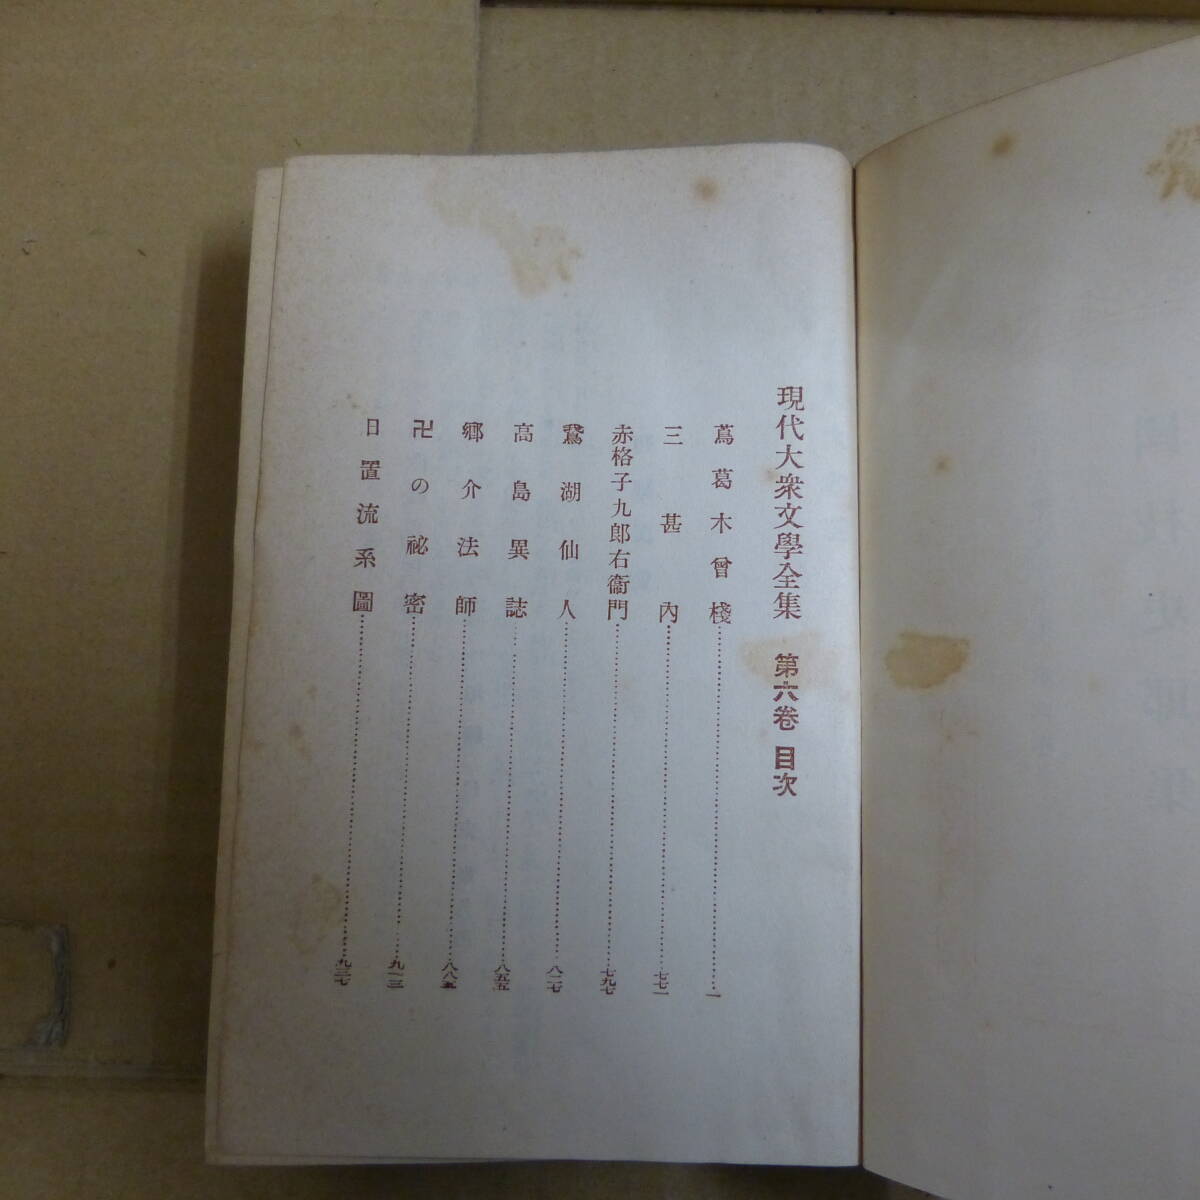 現代大衆文學全集 第六卷 目次
蔦葛木曾棧……一
三甚內……七七一
赤格子九郎右衞門……七九七
鵞湖仙人……八二七
高島異誌……八五五
鄕介法師……八八五
卍の祕密……九一三
日置流系圖……九三七